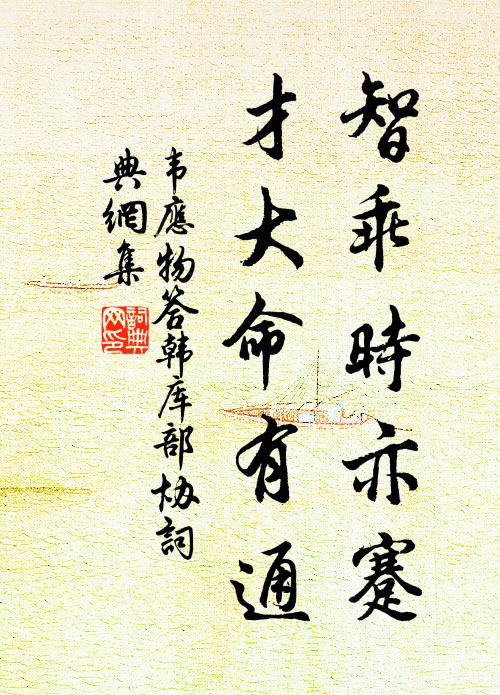 智乖時亦蹇
才大命有通
韦應物答韩库部协詞
典網集
詞典网印